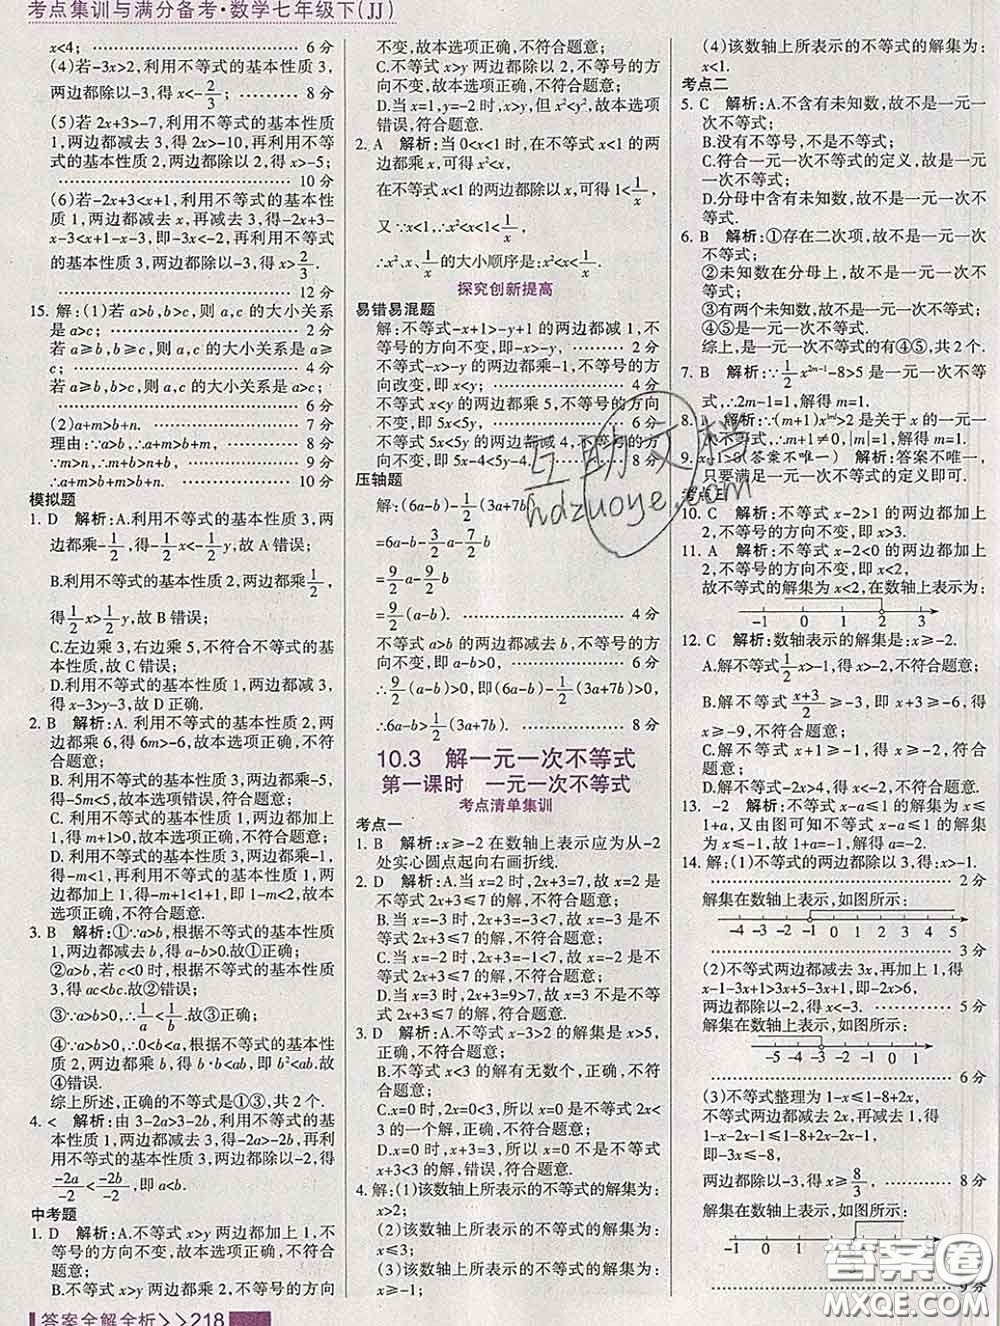 考点集训与满分备考·数学七年级下(JJ)
x<4; 6分
(4)若-3x>2,利用不等式的基本性质3,
两边都除以-3,得x<-2/3; 8分
(5)若2x+3>-7,利用不等式的基本性质
1,两边都减去3,得2x>-10,再利用不等
式的基本性质2,两边都除以2,得x>-5;
10分
(6)若-2x+3<x+1,利用不等式的基本性
质1,两边都减去x,再减去3,得-2x+3-
x-3<x+1-x-3,即-3x<-2,再利用不等式
的基本性质3,两边都除以-3,得x>2/3.
12分
15.解:(1)若a>b,b>c,则a,c的大小关系
是a>c; 2分
若a≥b,b≥c,则a,c的大小关系是a≥
c; 4分
若a≥b,b>c,则a,c的大小关系是a>c;
6分
(2)a+m>b+n. 7分
理由:∵a>b,∴a+m>b+m, 8分
∵m>n,∴m+b>n+b, 9分
∴a+m>b+m>b+n. 10分
模拟题
1. D 解析:A.利用不等式的基本性质3,两
边都乘-1/2,得-1/2x<-1/2y,故A错误;
B.利用不等式的基本性质2,两边都乘1/2,
得1/2x>1/2y,故B错误;
C.左边乘3,右边乘5,不符合不等式的基
本性质,故C错误;
D.利用不等式的基本性质1,两边都减3,
得x-3>y-3,故D正确.
2. B 解析:A.利用不等式的基本性质2,两
边都乘6,得6m>-6,故本选项正确,不符
合题意;
B.利用不等式的基本性质3,两边都乘-5,得
-5m<5,故本选项错误,符合题意;
C.利用不等式的基本性质1,两边都加上
1,得m+1>0,故本选项正确,不符合题意;
D.利用不等式的基本性质3,两边都乘-1,
得-m<1,再利用不等式的基本性质1,两
边都加上1,得-m+1<1+1,即1-m<2,故本
选项正确,不符合题意.
3. B 解析:①∵a>b,根据不等式的基本性质
1,两边都减去b,得a-b>0.故①正确;
②a>b,若c<0时,根据不等式的基本性质3,
得ac<bc.故②错误;
③∵a>b>0,∴1/a<1/b.故③正确;
④∵a>b>0,∴0<b<a,根据不等式的性质
2,两边都乘b,得b·b<ab,即b²<ab.故
④错误.
综上所述,正确的不等式是①③,共2个.
4. < 解析:由3-2a>3-2b,利用不等式的性
质1,两边都减去3,得-2a>-2b,再利用不
等式的性质3,不等式的两边都除以-2,得
-2a/-2<-2b/-2,即a<b.
中考题
1. D 解析:A.不等式x>y两边都加上1,不
等号的方向不变,故本选项正确,不符合
题意;
B.不等式x>y两边都乘2,不等号的方向
不变,故本选项正确,不符合题意;
C.不等式x>y两边都除以2,不等号的方
向不变,故本选项正确,不符合题意;
D.当x=1,y=-2时,x>y,但x²<y²,故本选项
错误,符合题意.
2. A 解析:当0<x<1时,在不等式x<1的两
边都乘x,可得x²<x,
在不等式x<1的两边都除以x,可得1<1/x,
又∵x<1,∴x²<x<1/x,
∴x²、x、1/x的大小顺序是:x²<x<1/x.
探究创新提高
易错易混题
解:不等式-x+1>-y+1的两边都减1,不
等号的方向不变,即-x>-y, 2分
不等式-x>-y的两边都乘-1,不等号的方
向改变,即x<y; 4分
不等式x<y的两边都乘5,不等号的方向
不变,即5x<5y, 6分
不等式5x<5y的两边都减4,不等号的方
向不变,即5x-4<5y-4. 8分
压轴题
解:(6a-b)-1/2(3a+7b)
=6a-b-3/2a-7/2b
=9/2a-9/2b
=9/2(a-b). 4分
不等式a>b的两边都减去b,不等号的方
向不变,即a-b>0, 6分
∴9/2(a-b)>0,即(6a-b)-1/2(3a+7b)>0,
∴6a-b>1/2(3a+7b). 8分
10.3 解一元一次不等式
第一课时 一元一次不等式
考点清单集训
考点一
1. B 解析:x≥-2在数轴上表示应为从-2
处实心圆点起向右画折线.
2. D 解析:A.当x=2时,2x+3=7,故x=2是
不等式2x+3≤7的解,不符合题意;
B.当x=-3时,2x+3=-3<7,故x=-3是不
等式2x+3≤7的解,不符合题意;
C.当x=-1时,2x+3=1<7,故x=-1是不等
式2x+3≤7的解,不符合题意;
D.当x=3时,2x+3=9>7,故x=3不是不等
式2x+3≤7的解,符合题意.
3. D 解析:A.不等式x-3>2的解集是x>5,
正确,不符合题意;
B.不等式x<3的解有无数个,正确,不符
合题意;
C.x=0时,2x=0<3,所以x=0是不等式2x<
3的一个解,正确,不符合题意;
D.x=0时,x+3=3,所以x=0不是不等式
x+3<3的解,错误,符合题意.
4.解:(1)该数轴上所表示的不等式的解集为:
x>2;
(2)该数轴上所表示的不等式的解集为:
x≤3;
(3)该数轴上所表示的不等式的解集为:
x≥-1;
(4)该数轴上所表示的不等式的解集为:
x<1.
考点二
5. C 解析:A.不含有未知数,故不是一元一
次不等式;
B.没有不等号,不是不等式;
C.符合一元一次不等式的定义,故是一元
一次不等式;
D.分母中含有未知数,故不是一元一次不
等式.
6. B 解析:①存在二次项,故不是一元一次
不等式;
②未知数在分母上,故不是一元一次不
等式;
③有两个未知数,故不是一元一次不等式;
④⑤是一元一次不等式.
综上,是一元一次不等式的有④⑤,共2个.
7. B 解析:∵1/2x²ᵐ⁻¹-8>5是一元一次不等
式,∴2m-1=1,解得m=1.
8. 1 解析:∵(m+1)x|m|>2是关于x的一元一
次不等式,∴m+1≠0,|m|=1,解得m=1.
9. x+1>0(答案不唯一) 解析:答案不唯一,
只要满足一元一次不等式的定义即可.
考点三
10. C 解析:不等式x-2>1的两边都加上
2,不等号的方向不变,即x>3.
11. A 解析:不等式x-2<0的两边都加上
2,不等号的方向不变,即x<2.
故不等式的解集为x<2,在数轴上表示为:
-1 0 1 2 3
12. C 解析:数轴表示的解集是:x≥-2.
A.解不等式1/2x>-1,得x>-2,不符合题意;
B.解不等式x+3/-2≥3,即x+3≤-6,得
x≤-9,不符合题意;
C.解不等式x+1≥-1,得x≥-2,符合题意;
D.解不等式-2x>4,得x<-2,不符合题意.
13. -2 解析:不等式x-a≤1的解集为x≤
1+a,又由图可知不等式x-a≤1的解集
为x≤-1,故1+a=-1,解得a=-2.
14.解:(1)不等式的两边都除以3,得:x>-1.
2分
解集在数轴上表示,如图所示:
-4 -3 -2 -1 0 1 2 3 4 5
3分
(2)不等式两边都减去3x,再加上1,得
1+x-1-3x>1+3x+5-3x+1,即-2x>6,
两边都除以-2,得x<-3. 5分
解集在数轴上表示,如图所示:
-5 -4 -3 -2 -1 0 1 2
6分
(3)不等式整理为1-x≤1-8+2x,
不等式两边都减去1,再减去2x,得
1-x-1-2x≤1-8+2x-2x-1,
即-3x≤-8,
两边都除以-3,得x≥8/3, 8分
解集在数轴上表示,如图所示:
-1 0 1
9分
答案全解全析>>218
互助文档
hdzuoye.com
答案圈
MXQE.COM